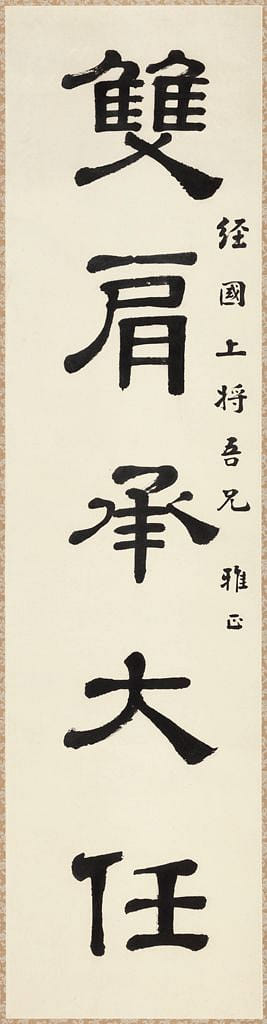 經國上將吾兄 雅正
雙肩承大任